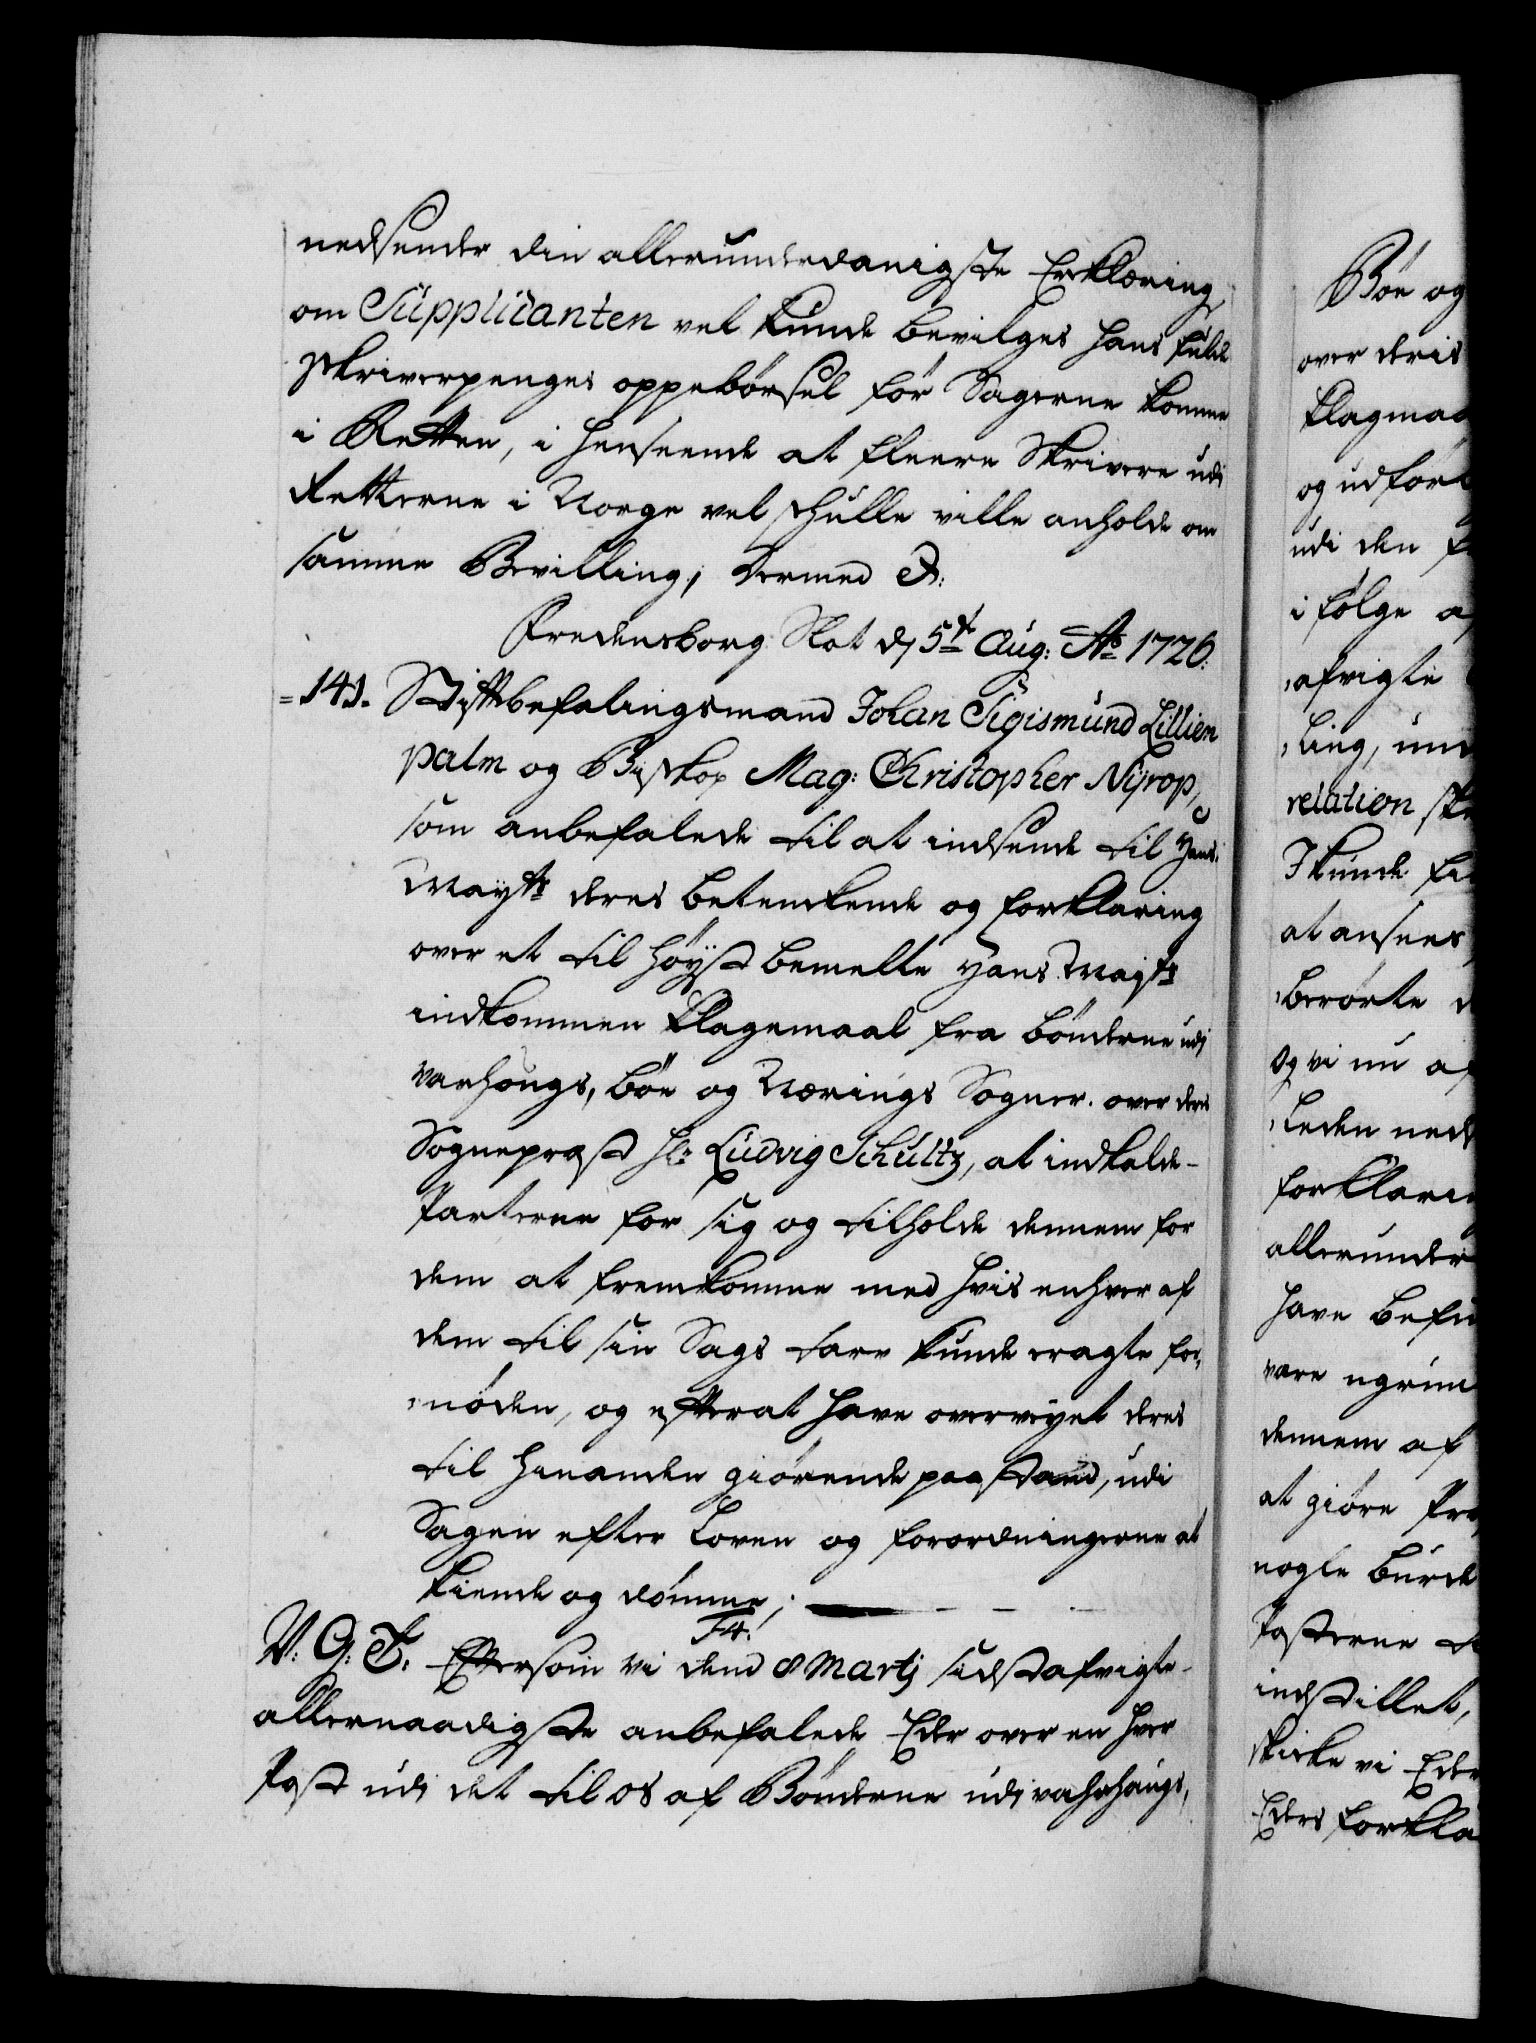 nedsender din allerunderdanigste Erklæring,
om Supplicanten vel kunde bevilges hans fulde
Skriverpenges oppebörsel för Sagerne komme
i Retten, i henseende at fleere Skrivere udi
Retterne i Norge vel skulle ville anholde om
samme Bevilling; Dermed &:
Fredensborg Slot dj 5t Aug: Ao 1726.
=141. Stiftbefalingsmand Johan Sigismund Lillien
palm og Biskop Mag: Christopher Nÿrop,
som anbefalede til at indsende til Hans
Mayts deres betenkende og forklaring
over et til höÿstbemelte Hans Mayts
indkommen Klagemaal fra bönderne udj
Varhougs, Böe og Nærings Sogner over deris
Sognepræst Hr: Ludvig Schultz, at indkalde
Parterne for sig og tilholde dennem for
dem at fremkomme med hvis enhver af
dem til sin Sags tarv kunde eragte for,
,nöden, og efterat have overveÿet deres
til hinanden giörende paastand, udi
Sagen efter Loven og forordningerne at
kiende og dömme;
F4.
V: G: T: Eftersom vi dend 8 Martj sidstafvigte
allernaadigste anbefalede Eder over en hver
Post udj det til os af Bönderne udj vahrhaugs,
Böe og
over deris
klagmaa
og udför
udi den
i fölge
,afvigte
,ling, und
relation
I kunde
at ansees
,berörte
og vi nu
,leden ned
forklarin
allerunder
have befu
vare ugrun
dennem af
at giöre
nogle burde
Posterne
indstillet,
skikke vi Eder
Eders forkla